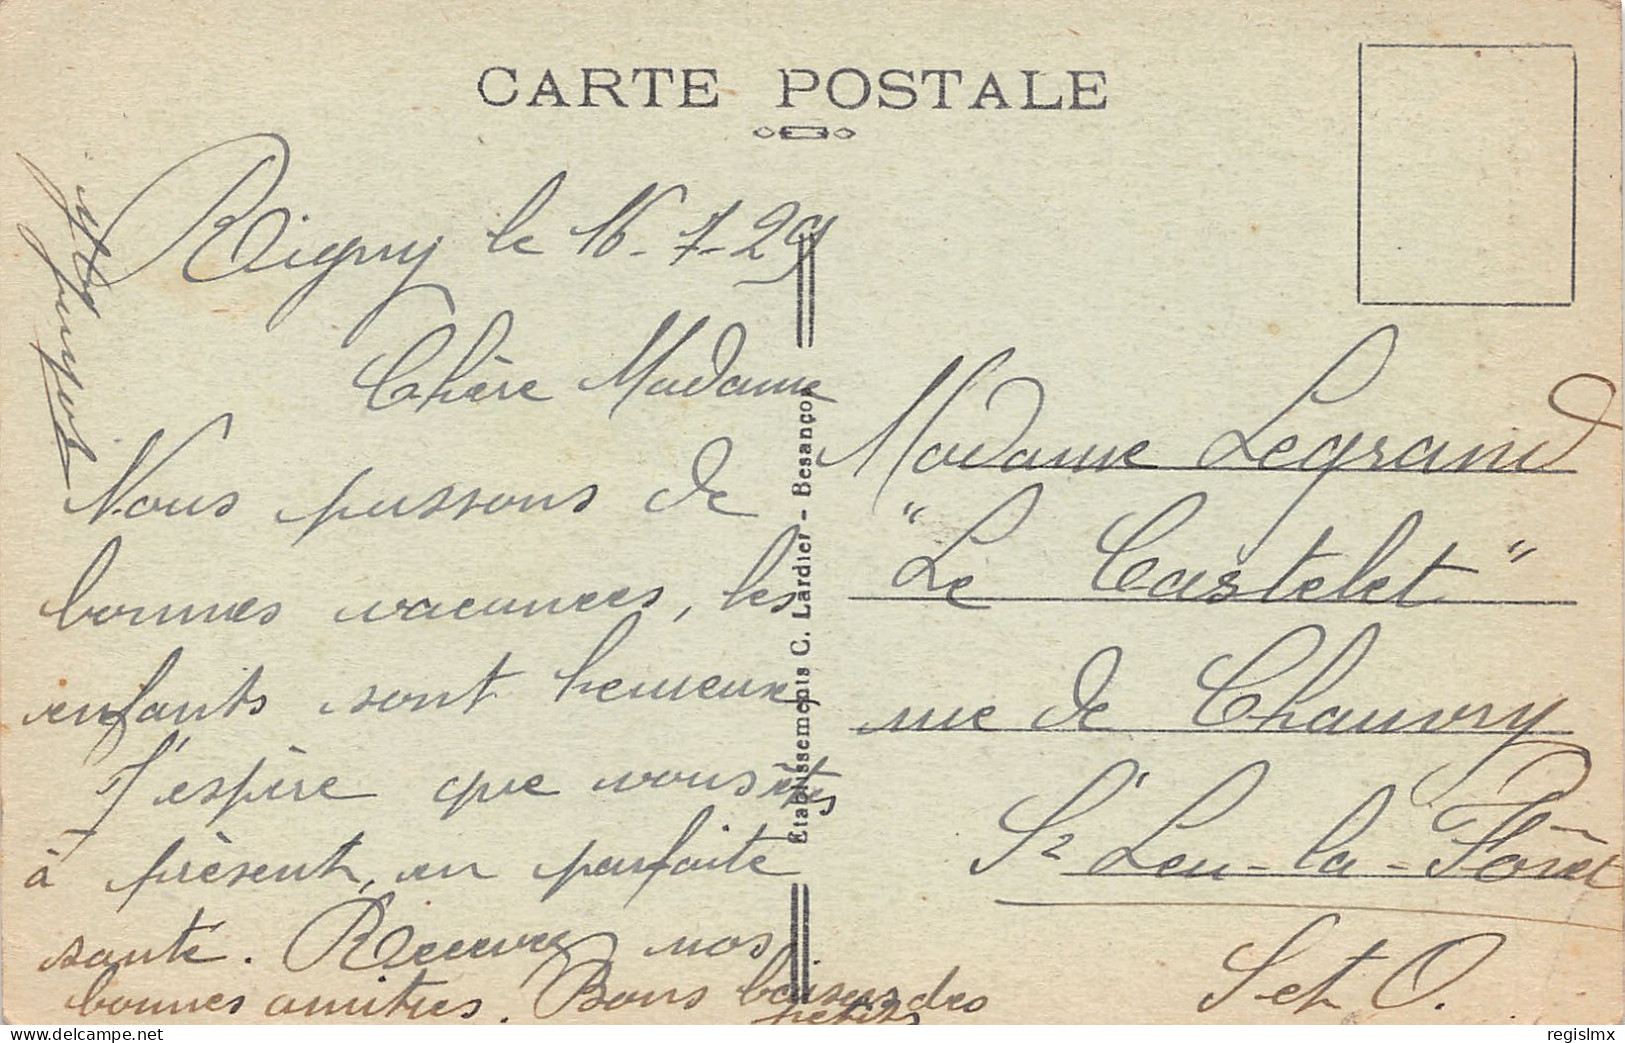 CARTE POSTALE
Rigny le 16-7-29
Chère Madame
Nous passons de
bonnes vacances, les
enfants sont heureux
J'espère que vous êtes
à présent, en parfaite
santé. Recevez nos
bonnes amitiés. Bons baisers des
petits
Etablissements C. Lardier - Besançon
Madame Legrand
"Le Castelet"
rue de Chauvry
St Leu-la-Forêt
S et O.
delcampe.net
regislmx